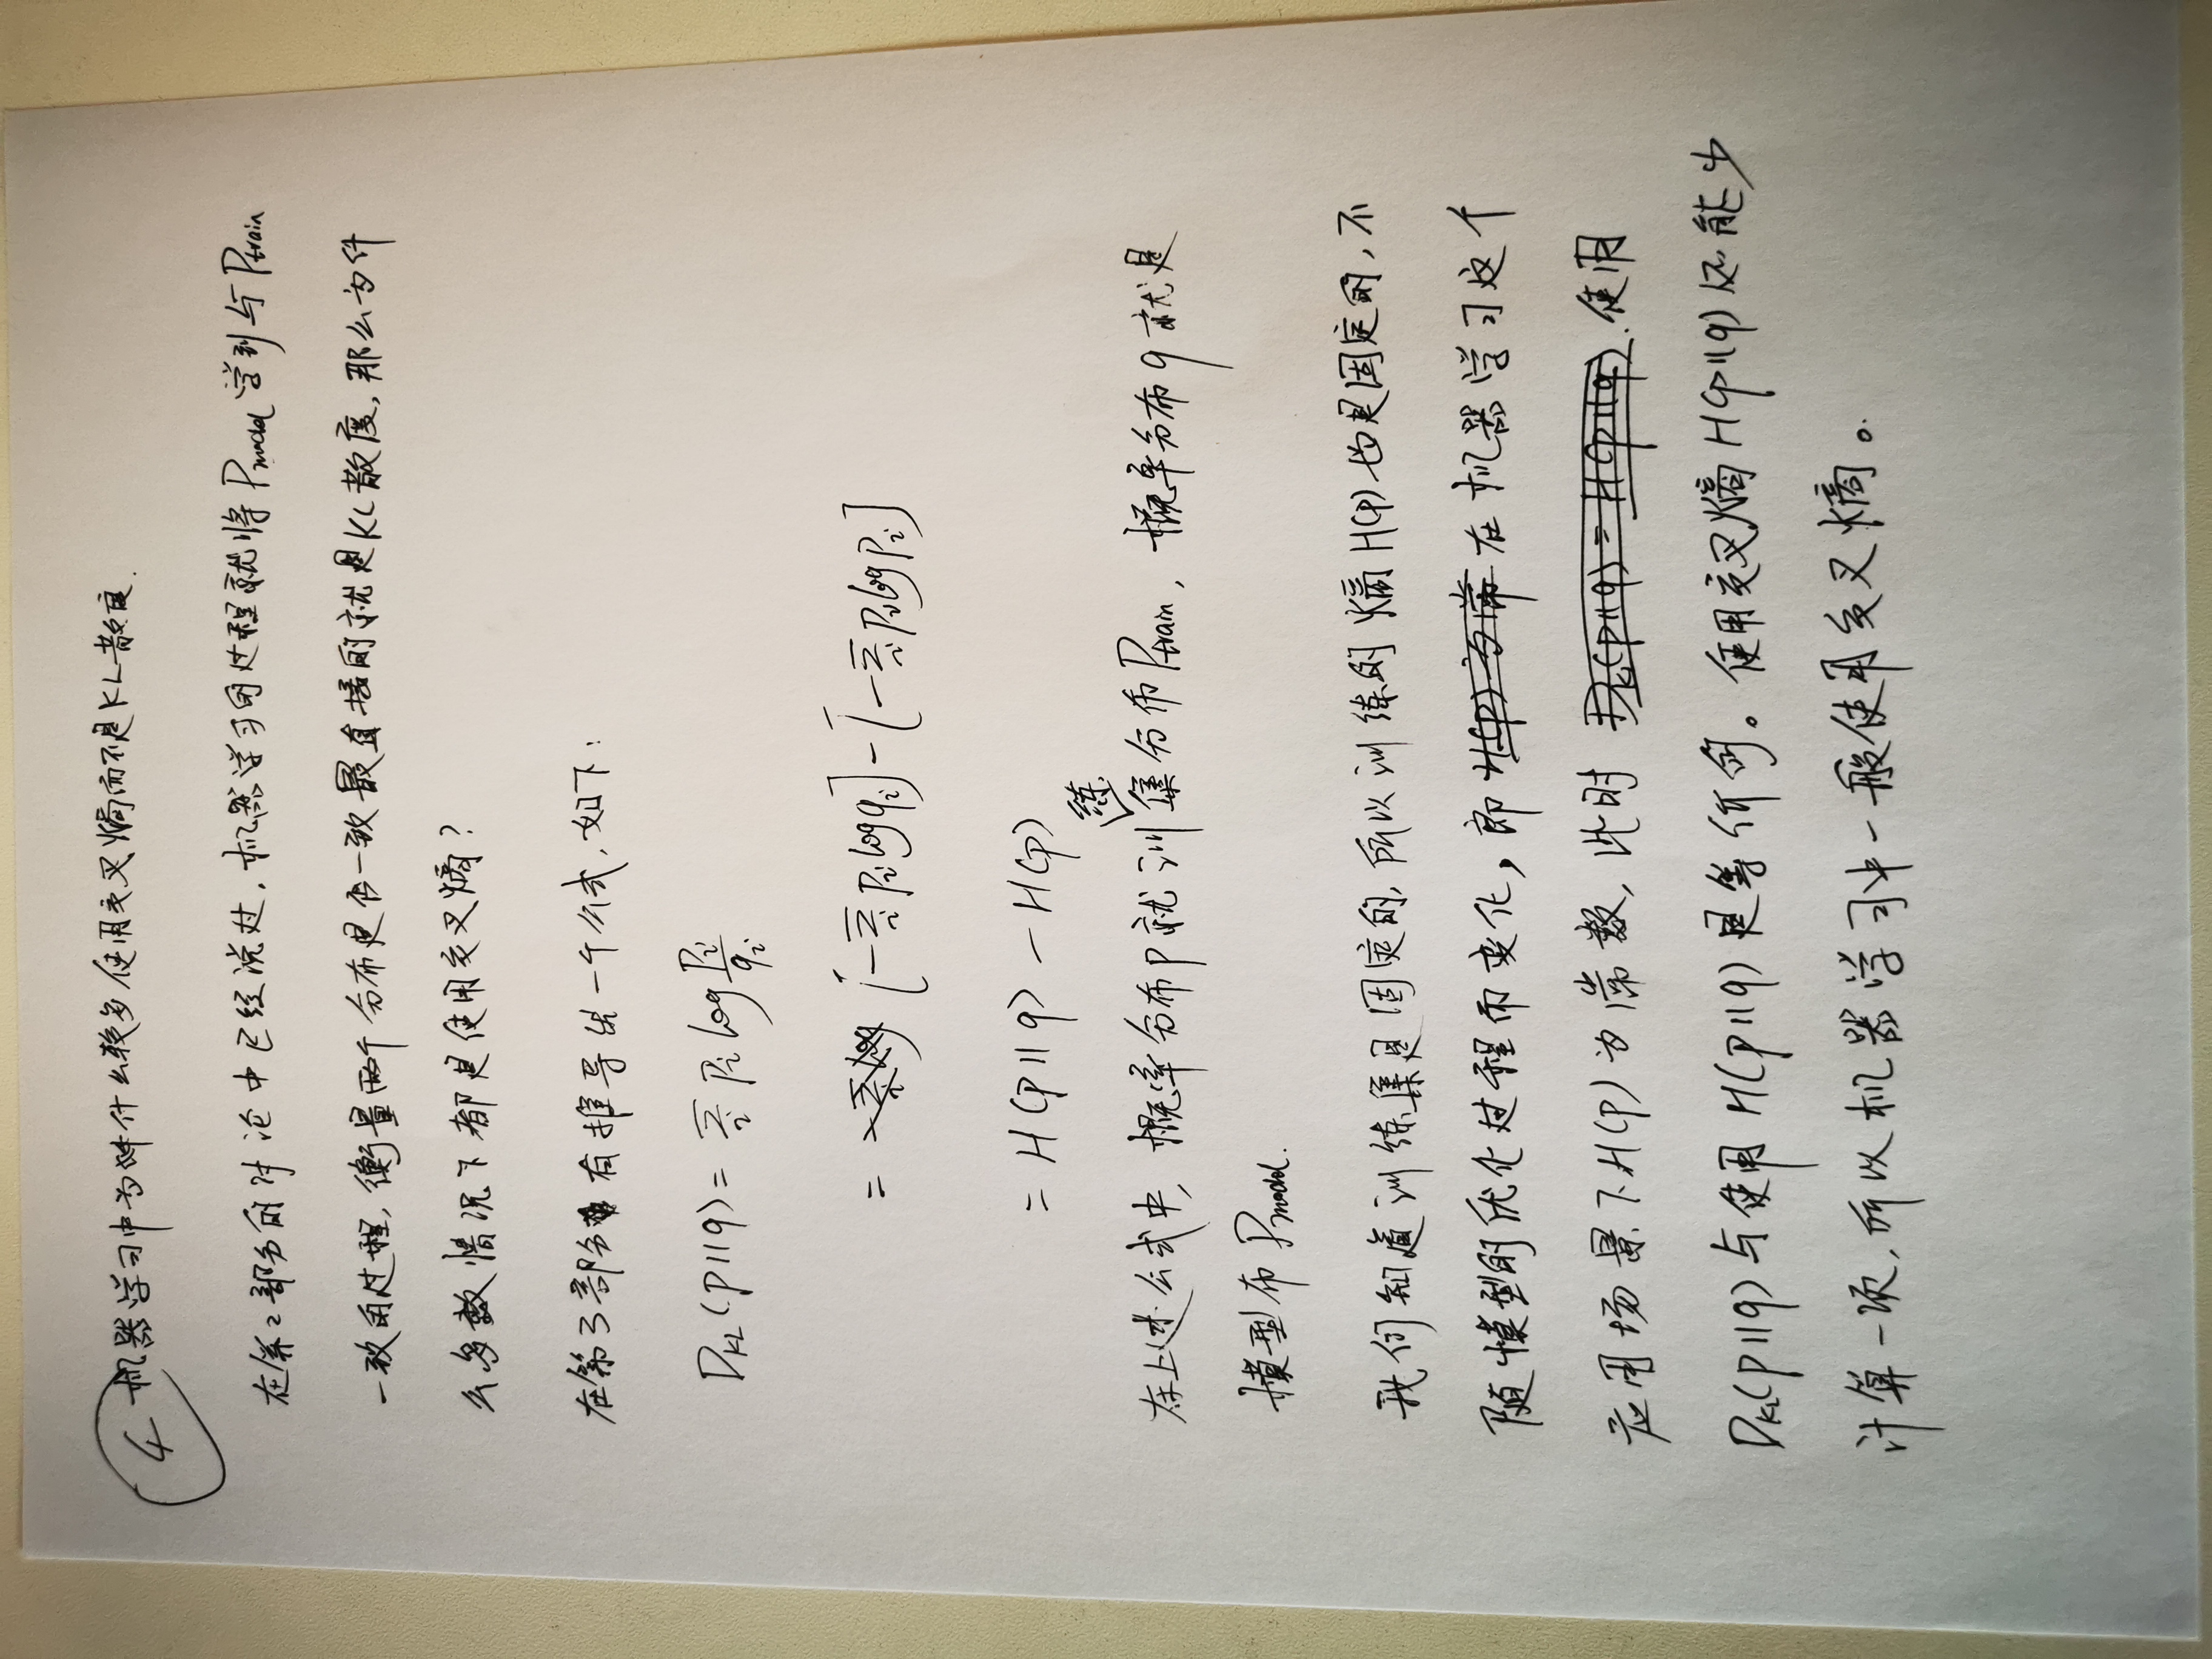 ④ 机器学习中为什么较多使用交叉熵而不是KL散度.
在第2部分的讨论中已经说过,机器学习的过程就将Pmodel学到与Ptrain
一致的过程,衡量两个分布是否一致最直接的就是KL散度,那么为什
么多数情况下都是使用交叉熵?
在第3部分有推导出一个公式,如下:
D_KL(p||q) = Σ_i p_i log p_i/q_i
= [-Σ_i p_i log q_i] - [-Σ_i p_i log p_i]
= H(p||q) - H(p)
在上述公式中,概率分布p就训练集分布Ptrain,概率分布q就是
模型布Pmodel.
我们知道训练集是固定的,所以训练的熵H(p)也是固定的,不
随模型的优化过程而变化,即在机器学习这个
应用场景下H(p)为常数,此时使用
D_KL(p||q)与使用H(p||q)是等价的。使用交叉熵H(p||q)还能少
计算一项,所以机器学习中一般使用交叉熵。